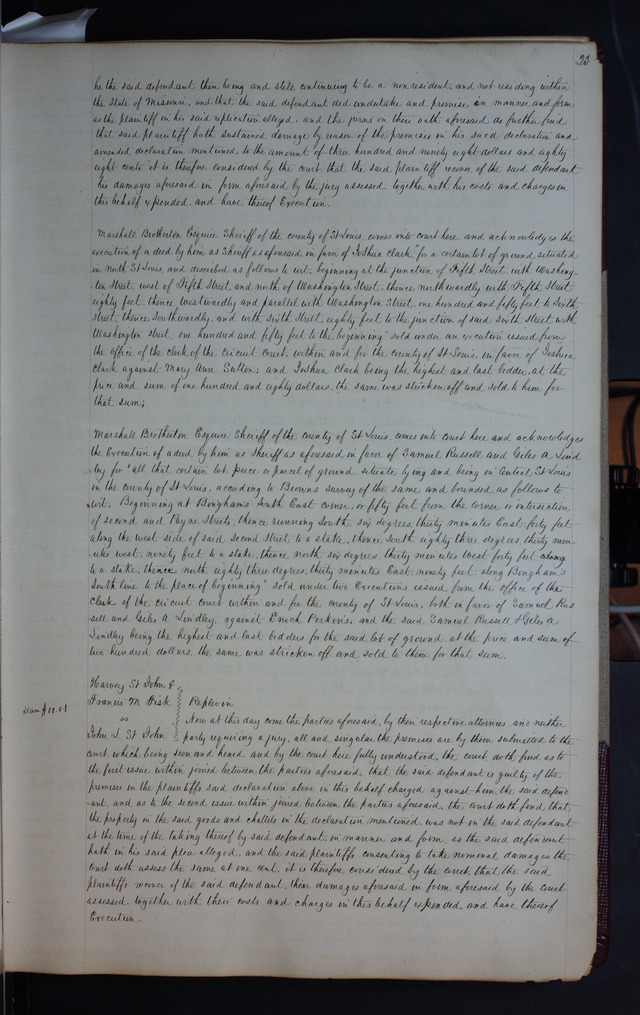 25
he the said defendant then being and still continuing to be a non resident, and not residing within
the State of Missouri, and that the said defendant did undertake and promise in manner and form
as the plaintiff in his said replication alleged. and the jurors on their oath aforesaid do further find
that said plaintiff hath sustained damage by reason of the premises in his said declaration and
amended declaration mentioned to the amount of three hundred and ninety eight dollars and eighty
eight cents it is therefore considered by the court that the said plaintiff recover of the said defendant
his damages aforesaid in form aforesaid by the jury assessed together with his costs and charges in
this behalf expended. and have thereof Execution.
Marshall Brotherton Esquire Sheriff of the county of St Louis, comes into court here and acknowledges the
execution of a deed by him as Sheriff as aforesaid in favor of Joshua Clark, "for a certain lot of ground situated
in north St Louis, and described as follows to wit, beginning at the junction of Fifth Street with Washing-
ton Street. west of Fifth Street and north of Washington Street. thence northwardly with Fifth Street
eighty feet. thence, westwardly and parallel with Washington Street, one hundred and fifty feet to Sixth
street, thence Southwardly, and with sixth Street eighty feet to the junction of said sixth street with
Washington street. one hundred and fifty feet to the beginning" sold under an execution issued from
the office of the clerk of the circuit court. within and for the county of St Louis, in favor of Joshua
Clark against Mary Ann Sutton, and Joshua Clark being the highest and last bidder, at the
price and sum of one hundred and eighty dollars, the same was stricken off and sold to him for
that sum;
Marshall Brotherton Esquire Sheriff of the county of St Louis. comes into court here and acknowledges
the Execution of a deed by him as Sheriff as aforesaid in favor of Samuel Russell and Giles A Lind
ley for "all that certain lot. piece or parcel of ground, situate lying and being in Central St Louis
in the county of St Louis. according to Browns survey of the same and bounded as follows to
wit. Beginning at Bingham's South East corner, or fifty feet from the corner or intersection
of second and Payne streets, thence running South six degrees, thirty minutes East forty feet
along the west side of said second street to a stake, thence South eighty three degrees thirty min-
utes west, ninety feet to a stake, thence north six degrees thirty minutes West forty feet along
to a stake, thence north eighty three degrees, thirty minutes East, ninety feet along Bingham's
South line to the place of beginning" sold under two Executions issued from the office of the
clerk of the circuit court within and for the county of St Louis, both in favor of Samuel Rus
sell and Giles A Lindley against Enoch Perkins. and the said Samuel Russell & Giles A
Lindley being the highest and last bidders for the said lot of ground. at the price and sum of
two hundred dollars. the same was stricken off and sold to them for that sum.
Harvey St John &
Francis M Fisk Replevin
vs Now at this day come the parties aforesaid, by their respective attornies, and neither
John L St John party requiring a jury. all and singular the premises are by them submitted to the
court, which being seen and heard and by the court here fully understood. the court doth find as to
the first issue within joined between the parties aforesaid that the said defendant is guilty of the
premises in the plaintiffs said declaration above in this behalf charged against him the said defend
ant. and as to the second issue within joined between the parties aforesaid, the court doth find, that
the property in the said goods and chattels in the declaration mentioned was not in the said defendant
at the time of the taking thereof by said defendant, in manner and form, as the said defendant
hath in his said plea alleged. and the said plaintiffs consenting to take nominal damages the
court doth assess the same at one cent. it is therefore considered by the court that the said
plaintiffs recover of the said defendant, their damages aforesaid in form aforesaid by the court
assessed together with their costs and charges in this behalf expended, and have thereof
Execution..